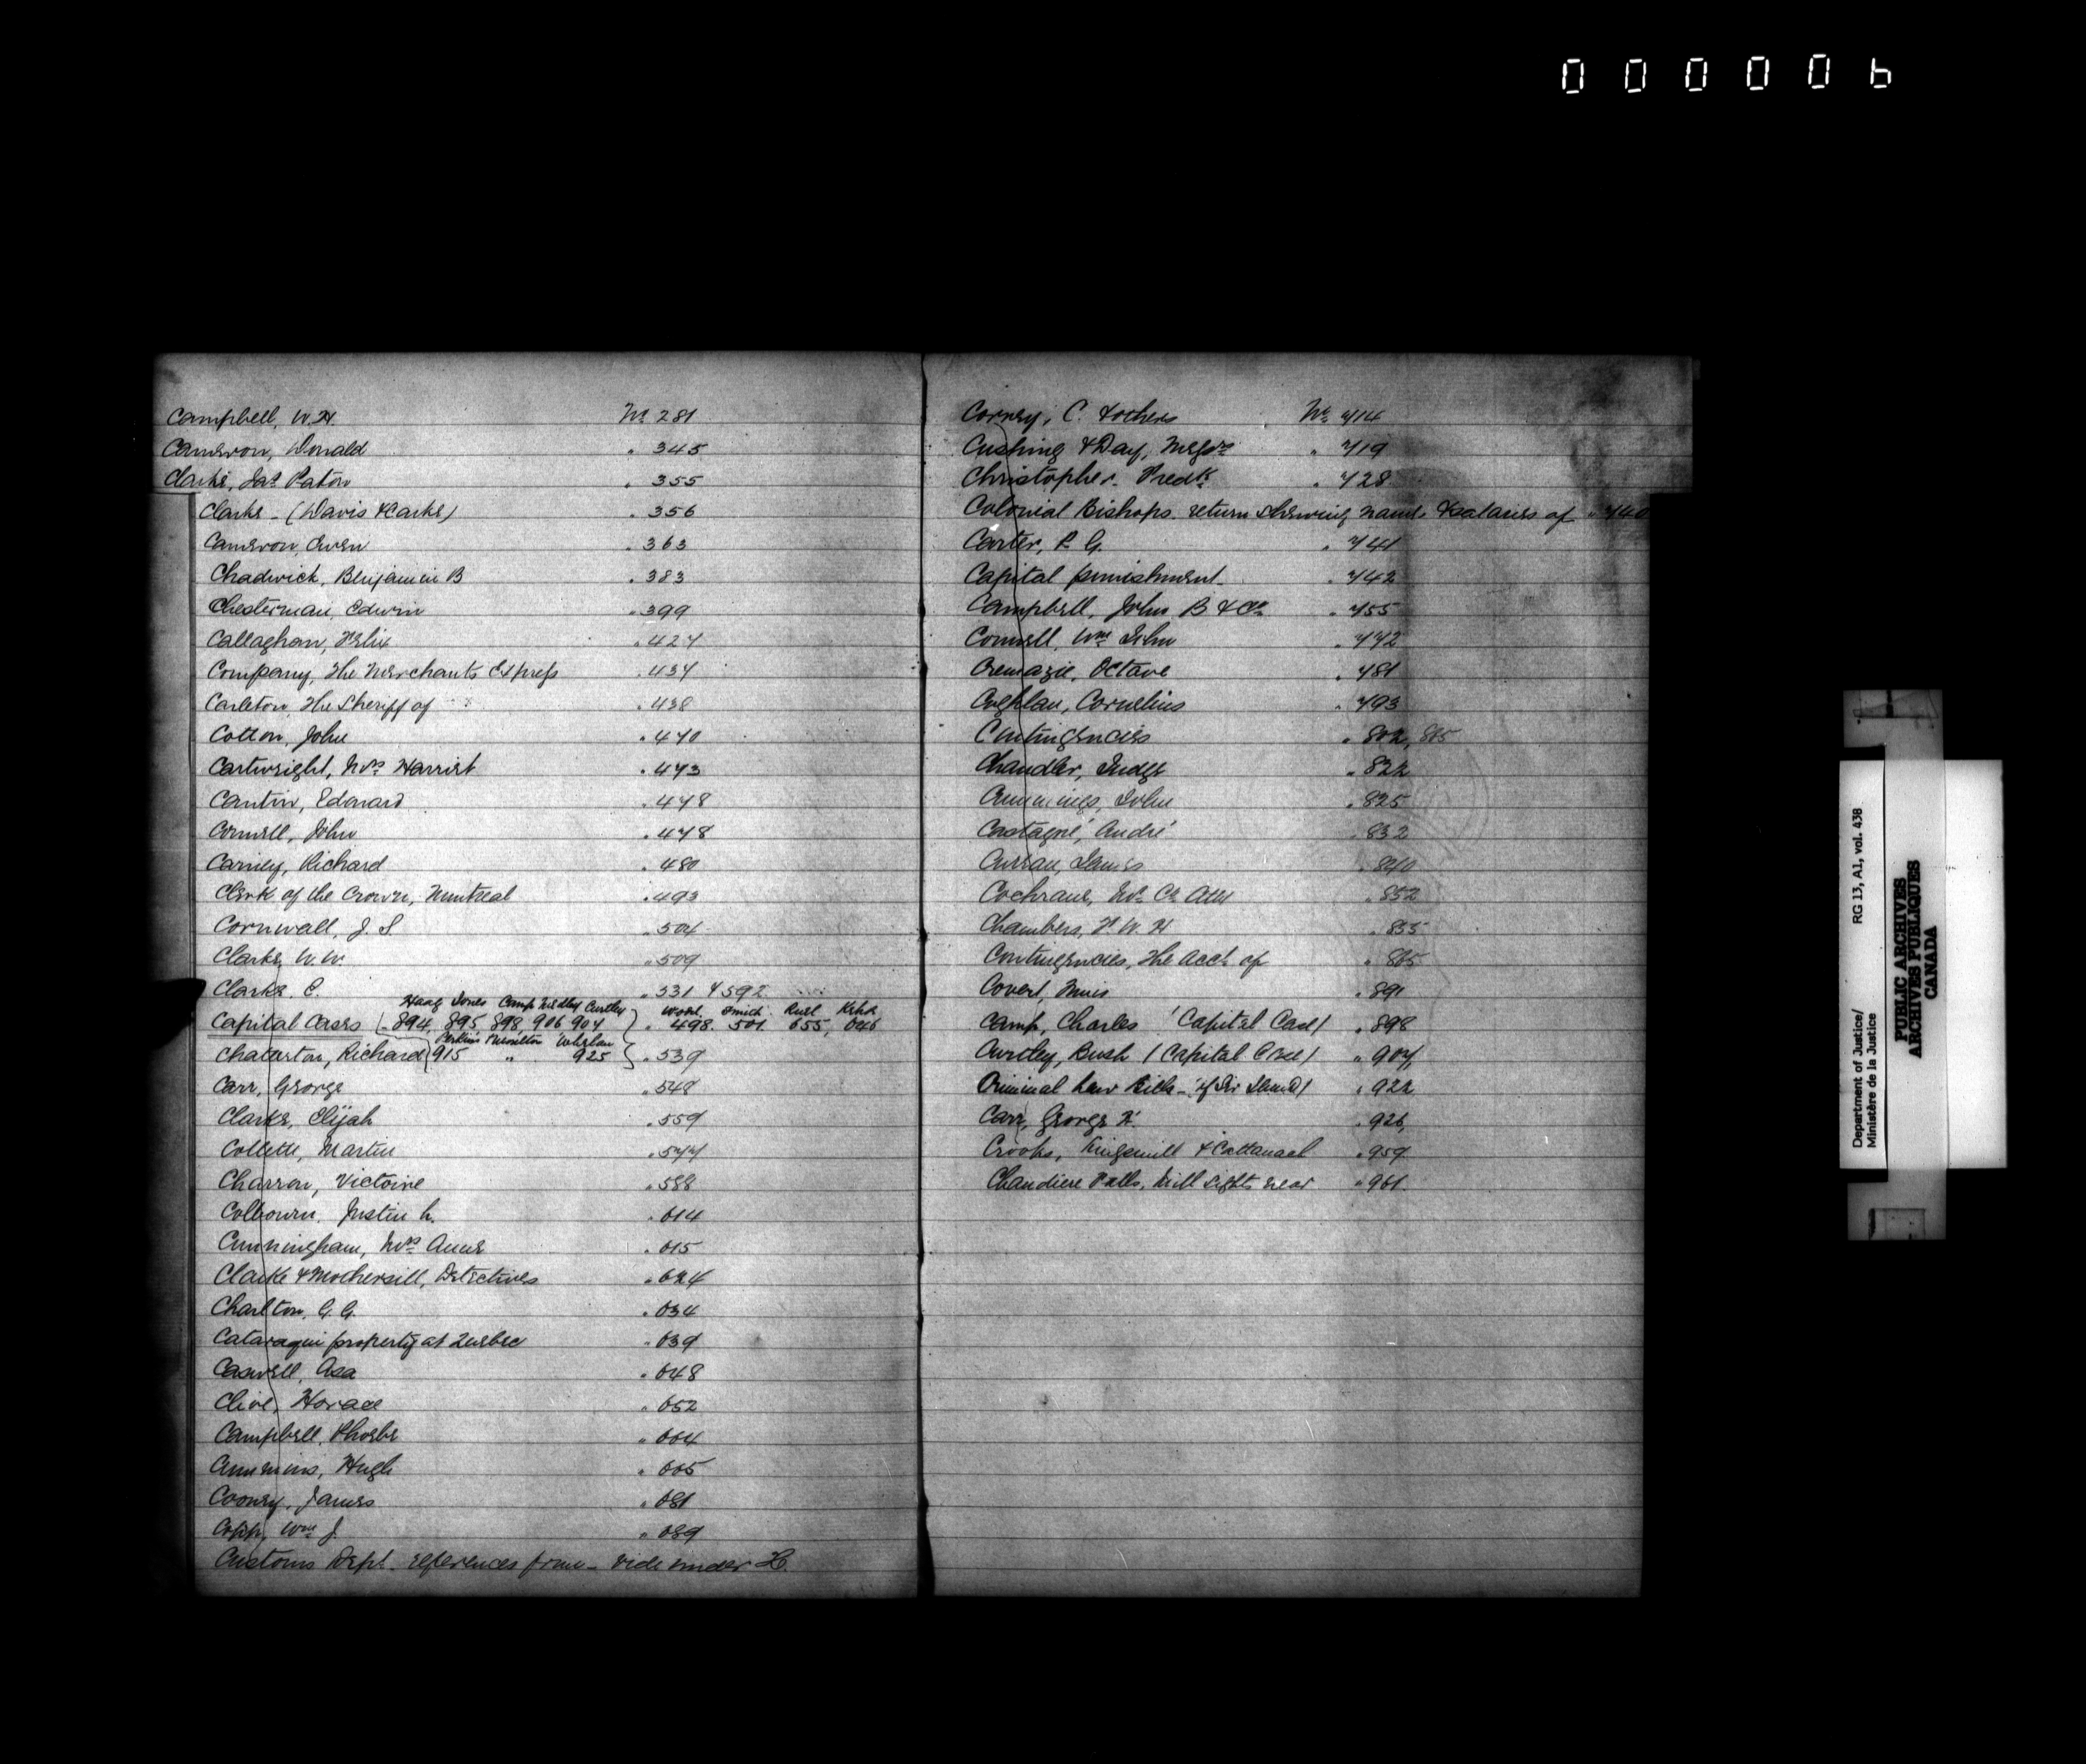 000006
Campbell, W.H. No 281
Cameron, Donald " 345
Clarke, Jas Paton " 355
Clarke - (Davis & Clarke) " 356
Cameron, Owen " 363
Chadwick, Benjamin B " 383
Chesterman, Edwin " 399
Callaghan, Felix " 427
Company, The Merchants Express " 437
Carleton, The Sheriff of " 438
Cotton, John " 470
Cartwright, Mrs Harriet " 473
Cantin, Edward " 478
Connell, John " 478
Carney, Richard " 480
Clerk of the Crown, Montreal " 493
Cornwall, J. S. " 504
Clarke, W.W. " 509
Clarke, C. " 531 & 592
Haag Jones Camp Medley Curtley
Capital Cases 894, 895, 898, 906, 907 " 498. 501. 655, 646
Whelan
Chaterton, Richard 915 " 925 " 539
Carr, George " 548
Clarke, Elijah " 559
Collette, Martin " 577
Charron, Victoire " 588
Colbourn, Justin L. " 614
Cunningham, Mrs Anne " 615
Clarke & Mothersill, Detectives " 624
Charlton, G. G. " 634
Cataraqui property at Quebec " 639
Caswell, Asa " 648
Clive, Horace " 652
Campbell, Phoebe " 664
Cummins, Hugh " 665
Cooney, James " 681
Copp, Wm J. " 689
Customs Dept. references from - vide under H.
Corney, C. & others No 714
Cushing & Day, Messrs " 719
Christopher, Fredk " 728
Colonial Bishops. return shewing names & salaries of " 740
Carter, R. G. " 741
Capital punishment " 742
Campbell, John B & Co " 755
Connell, Wm John " 772
Cremazie, Octave " 781
Coghlan, Cornelius " 793
Contingencies " 802, 865
Chandler, Judge " 822
Cummings, John " 825
Castagné, André 832
Curran, James " 840
Cochrane, Co Atty " 852
Chambers, F. W. H " 855
Contingencies, the acct of " 865
Covert, " 891
Camp, Charles (Capital Case) " 898
Curtley, Bush (Capital Case) " 907
Criminal Law Bills - " 922
Carr, George H. " 926
Crooks, Kingsmill & Cattanach " 959
Chaudiere Falls, Mill sights near " 961
Department of Justice/ RG 13, A1, vol. 438
Ministère de la Justice
PUBLIC ARCHIVES
ARCHIVES PUBLIQUES
CANADA